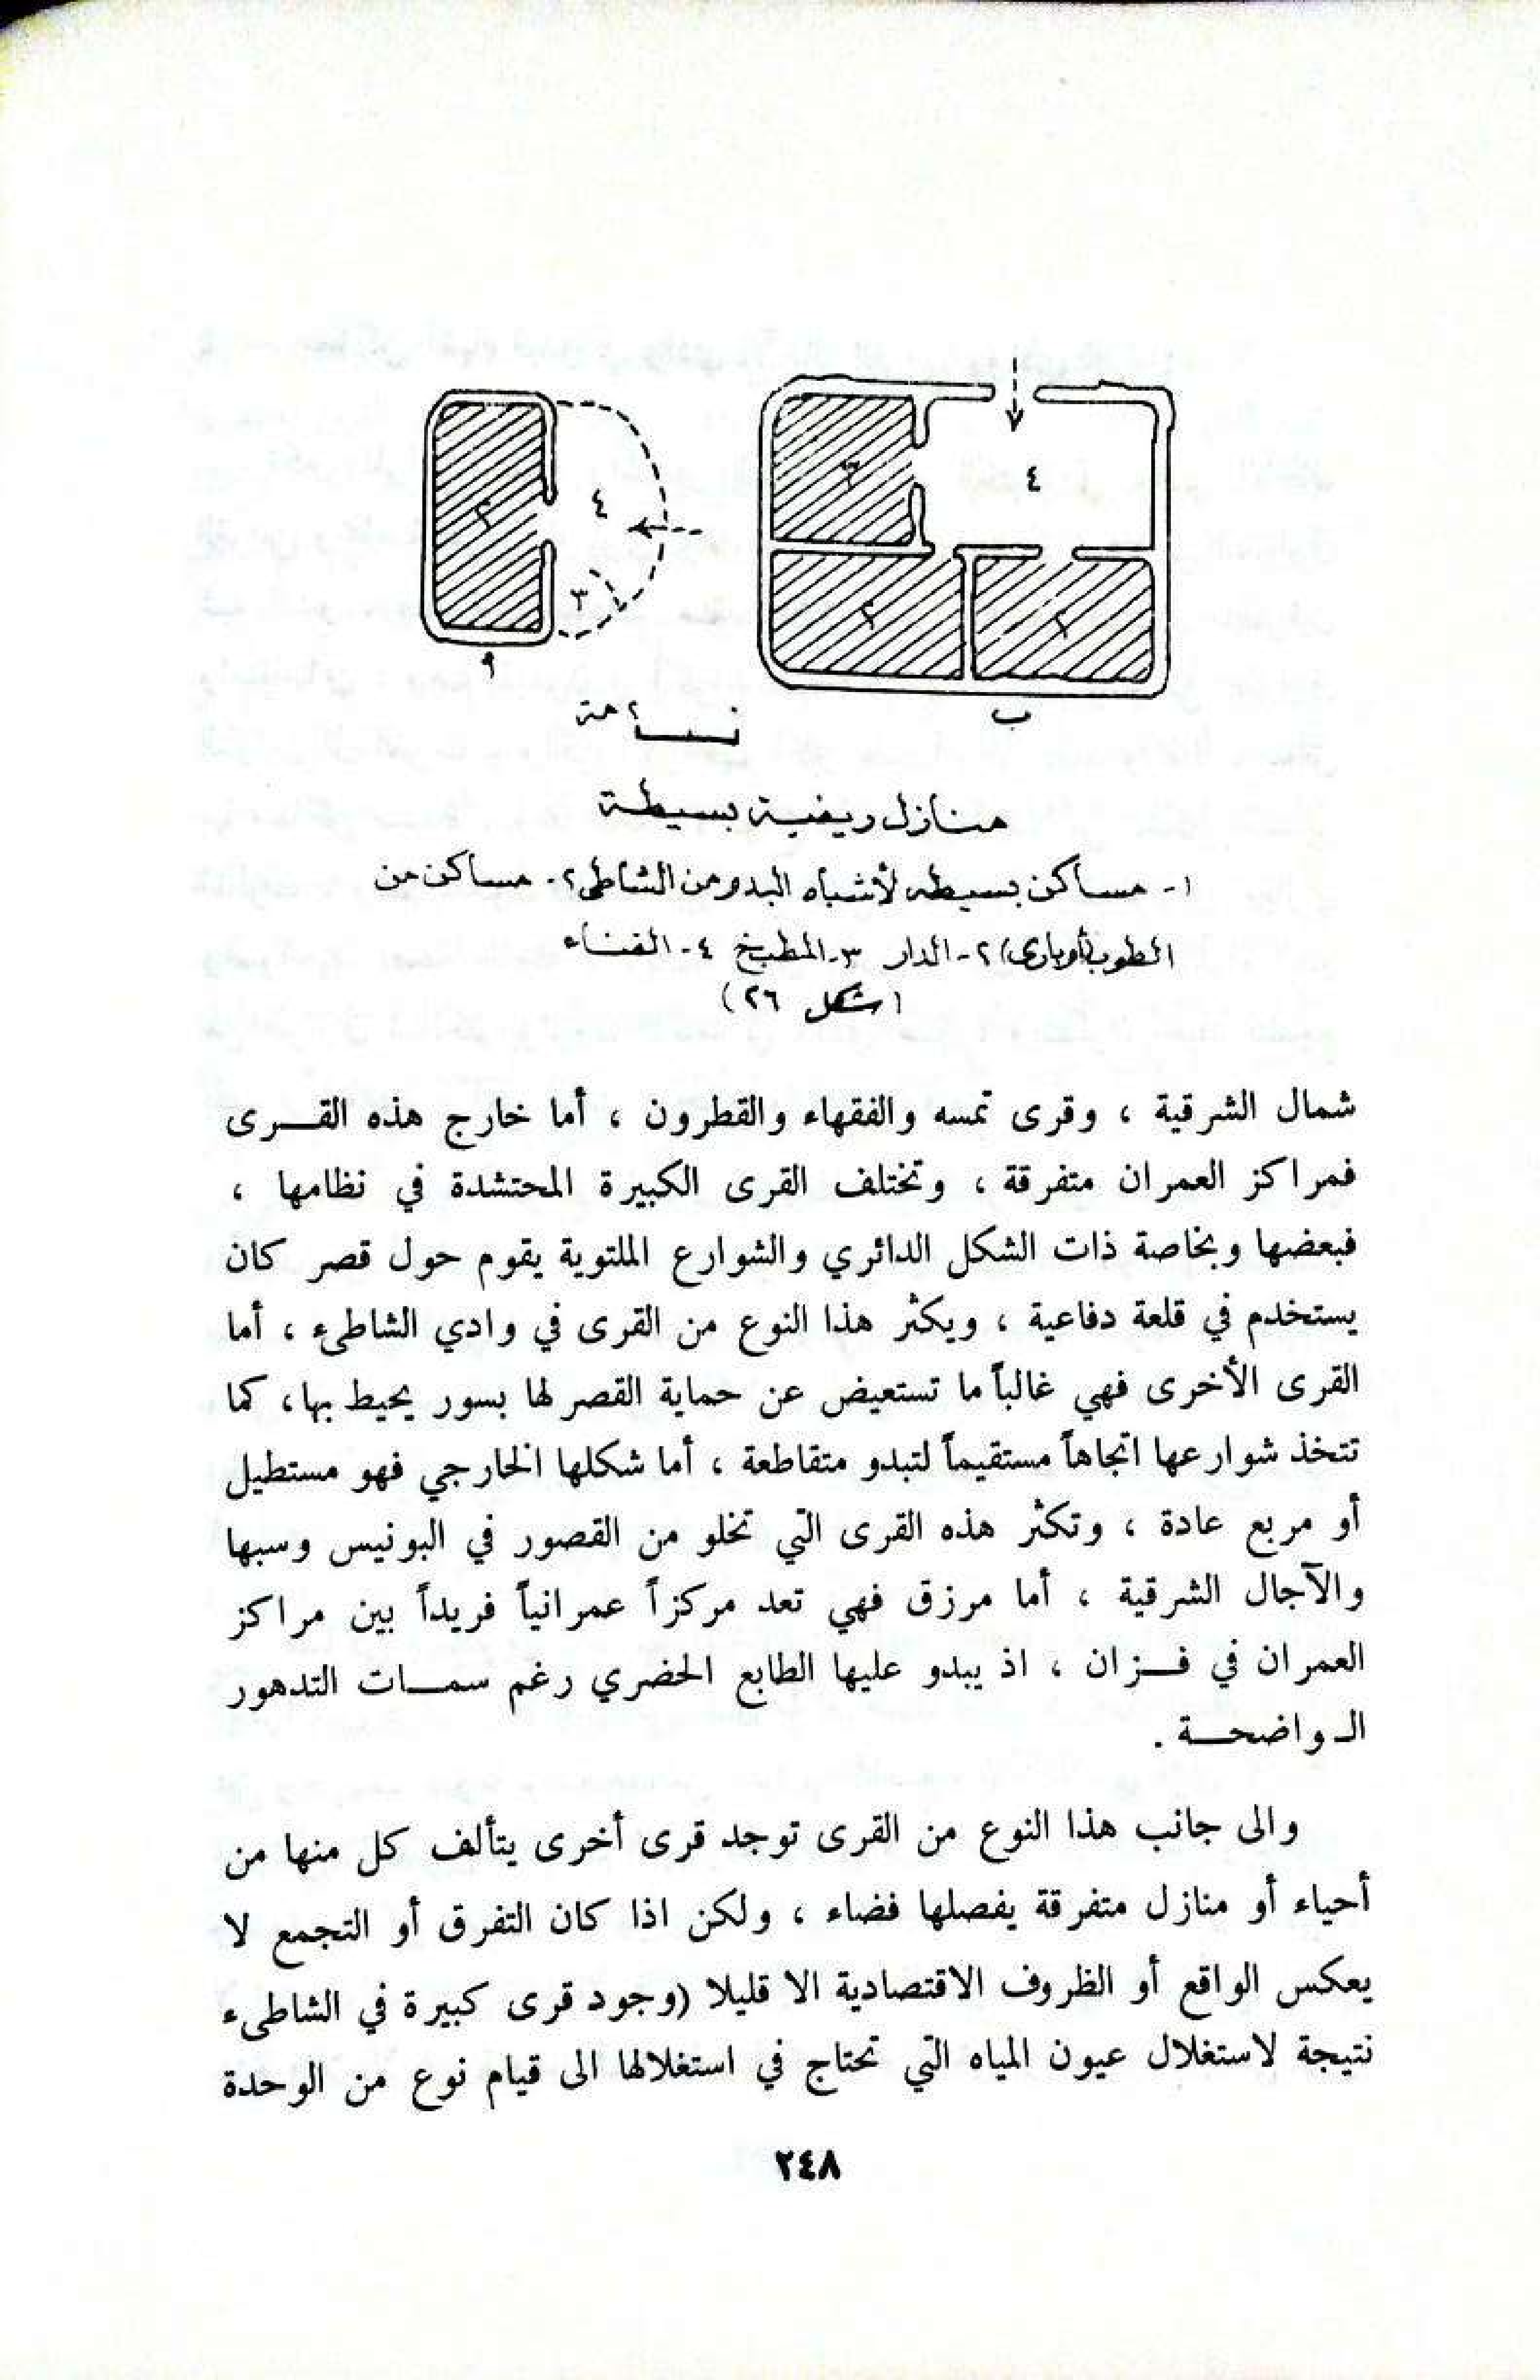 ٤
٤
٢
٣
٢
٢
ب
منازل ريفية بسيطة
١- مساكن بسيطه لأشباه البدو من الشاطئ ٢- مساكن من
الطوب (أوبارى) ٢- الدار ٣- المطبخ ٤- الفناء
(شكل ٢٦)
شمال الشرقية ، وقرى تمسه والفقهاء والقطرون ، أما خارج هذه القـــرى
فمراكز العمران متفرقة ، وتختلف القرى الكبيرة المحتشدة في نظامها ،
فبعضها وبخاصة ذات الشكل الدائري والشوارع الملتوية يقوم حول قصر كان
يستخدم في قلعة دفاعية ، ويكثر هذا النوع من القرى في وادي الشاطىء ، أما
القرى الأخرى فهي غالباً ما تستعيض عن حماية القصر لها بسور يحيط بها ، كما
تتخذ شوارعها اتجاهاً مستقيماً لتبدو متقاطعة ، أما شكلها الخارجي فهو مستطيل
أو مربع عادة ، وتكثر هذه القرى التي تخلو من القصور في البونيس وسبها
والآجال الشرقية ، أما مرزق فهي تعد مركزاً عمرانياً فريداً بين مراكز
العمران في فـــزان ، اذ يبدو عليها الطابع الحضري رغم سمـــات التدهور
الـواضحـــة .
والى جانب هذا النوع من القرى توجد قرى أخرى يتألف كل منها من
أحياء أو منازل متفرقة يفصلها فضاء ، ولكن اذا كان التفرق أو التجمع لا
يعكس الواقع أو الظروف الاقتصادية الا قليلا (وجود قرى كبيرة في الشاطىء
نتيجة لاستغلال عيون المياه التي تحتاج في استغلالها الى قيام نوع من الوحدة
٢٤٨